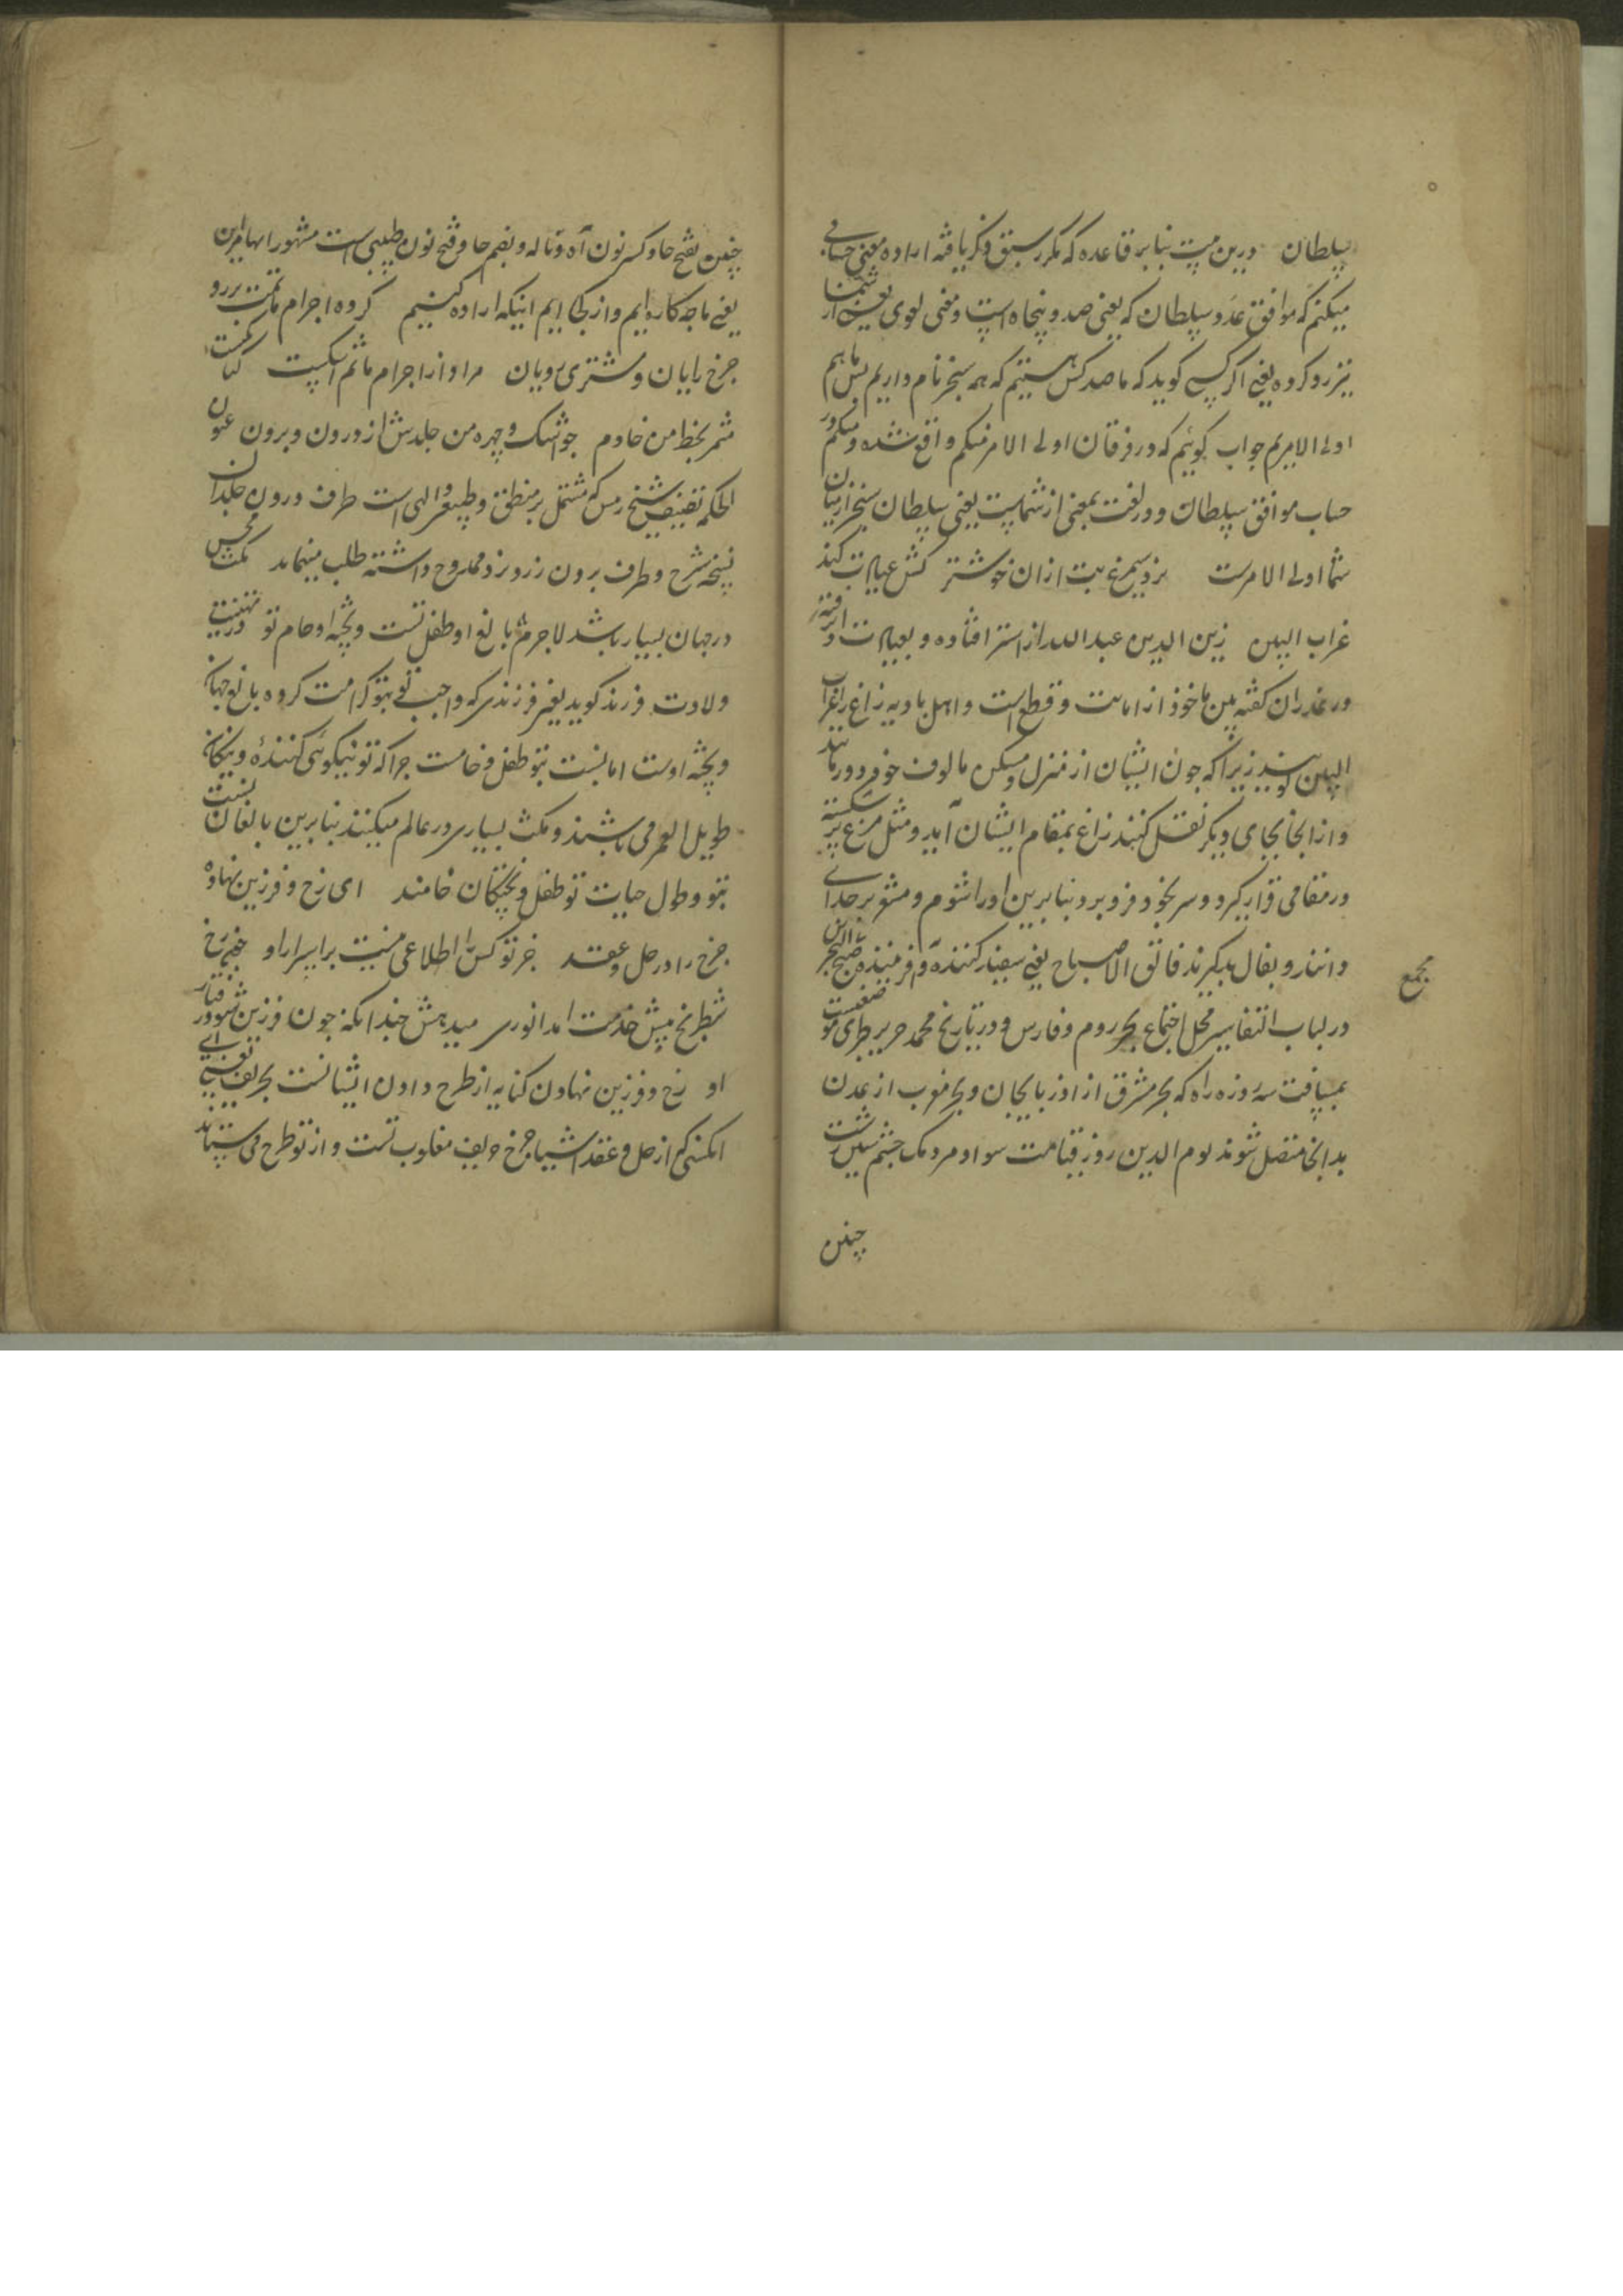 سلطان درین بیت بنا بر قاعده که مکرر سبق ذکر یافته اراده معنی حسابی
میکنم که موافق عدد سلطان که یعنی صد و پنجاه است و معنی لغوی یعنی از شما
نیز رد کرده یعنی اگر کسی کوید که ما صد کس هستیم که همه سنجر نام داریم پس ما هم
اولی الامریم جواب کوئیم که در فرقان اولی الامر منکم واقع شده و منکم در
حساب موافق سلطان و در لغت بمعنی از شماست یعنی سلطان سنجر از میان
شما اولی الامرست نزد سیمرغ بیت ازان خوشتر کش عیالات کند
غراب البین زین الدین عبدالله از استر افتاده و بعیالات
در عذر ان کفته بین ماخوذ از ابانت و قطع است و اهل بادیه زاغ را غراب
البین کویند زیرا که چون ایشان از منزل و مسکن مالوف خود دور مانند
و از انجا بجای دیکر نقل کنند زاغ بمقام ایشان آید و مثل مرغ پر شکسته
در مقامی قرار کیرد و سر بخود فرو برد بنا برین او را شوم و مشعر بر جدائی
دانند و بفال بد کیرند فالق الاصباح یعنی سفید کننده و آفریننده صبح
مجمع
در لباب التفاسیر محل اجتماع بحر روم و فارس و در تاریخ محمد جریر طبری موضعیست
بمسافت سه روزه راه که بحر مشرق از اذربایجان و بحر مغرب از عدن
بدانجا متصل شوند یوم الدین روز قیامت سواد مردمک چشم
چنین
چنین بفتح حا و کسر نون آه و ناله و بضم حا و فتح نون طبیبی است مشهور
یعنی ما چه کاره ایم و از کجا ایم اینکه اراده کنیم کرده اجرام ماتمت بر رو
چرخ رایان و مشتری رویان مراد از اجرام ماتم اشکست
ثمر بخط من خادم چو اشک و چهره من جلدش از درون و برون عیون
الحکمه تصنیف شیخ رئیس که مشتمل بر منطق و طبیعی و الهی است طرف درون جلد ان
نسخه سرخ و طرف برون زرد نزد ممدوح داشته طلب مینماید مکث
در جهان بسیار باشد لاجرم بالغ او طفل تست و پخته او خام تو در تهنیت
ولادت فرزند کوید یعنی فرزندی که واجب تع بتو کرامت کرده بالغ جهان
و پخته اوست اما نسبت بتو طفل و خامست چرا که تو نیکوئی کننده و نیکان
طویل العمر می باشند و مکث بسیاری در عالم میکنند بنا برین بالغان نسبت
بتو و طول حیات تو طفل و پختکان خامند ای رخ و فرزین نهاده
چرخ را در حل و عقد جز تو کس را اطلاعی نیست بر اسرار او
شطرنج پیش خدمت امد انوری میدهش چندانکه چون فرزین شود رفتار
او رخ و فرزین نهادن کنایه از طرح دادن ایشانست بحریف یعنی ای
انکسی که از حل و عقد اشیا چرخ حریف مغلوب تست و از تو طرح می ستاند